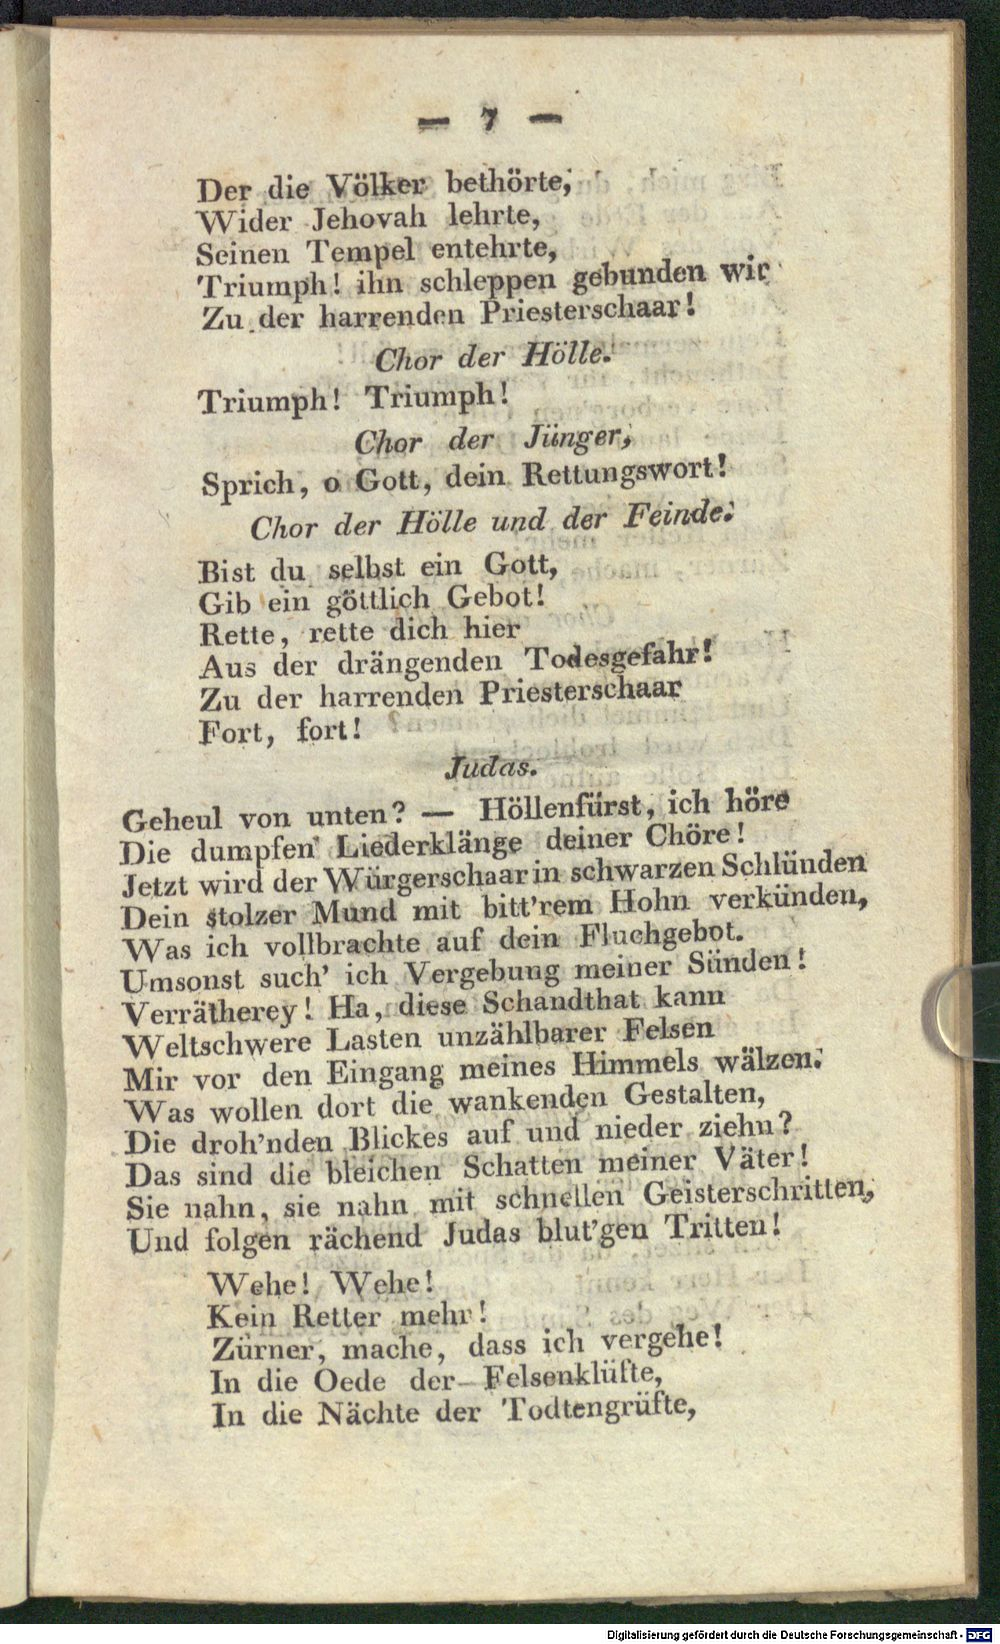 — 7 —
Der die Völker bethörte,
Wider Jehovah lehrte,
Seinen Tempel entehrte,
Triumph! ihn schleppen gebunden wir
Zu der harrenden Priesterschaar!
Chor der Hölle.
Triumph! Triumph!
Chor der Jünger,
Sprich, o Gott, dein Rettungswort!
Chor der Hölle und der Feinde.
Bist du selbst ein Gott,
Gib ein göttlich Gebot!
Rette, rette dich hier
Aus der drängenden Todesgefahr!
Zu der harrenden Priesterschaar
Fort, fort!
Judas.
Geheul von unten? — Höllenfürst, ich höre
Die dumpfen Liederklänge deiner Chöre!
Jetzt wird der Würgerschaar in schwarzen Schlünden
Dein stolzer Mund mit bitt'rem Hohn verkünden,
Was ich vollbrachte auf dein Fluchgebot.
Umsonst such' ich Vergebung meiner Sünden!
Verrätherey! Ha, diese Schandthat kann
Weltschwere Lasten unzählbarer Felsen
Mir vor den Eingang meines Himmels wälzen.
Was wollen dort die wankenden Gestalten,
Die droh'nden Blickes auf und nieder ziehn?
Das sind die bleichen Schatten meiner Väter!
Sie nahn, sie nahn mit schnellen Geisterschritten,
Und folgen rächend Judas blut'gen Tritten!
Wehe! Wehe!
Kein Retter mehr!
Zürner, mache, dass ich vergehe!
In die Oede der Felsenklüfte,
In die Nächte der Todtengrüfte,
Digitalisierung gefördert durch die Deutsche Forschungsgemeinschaft - DFG